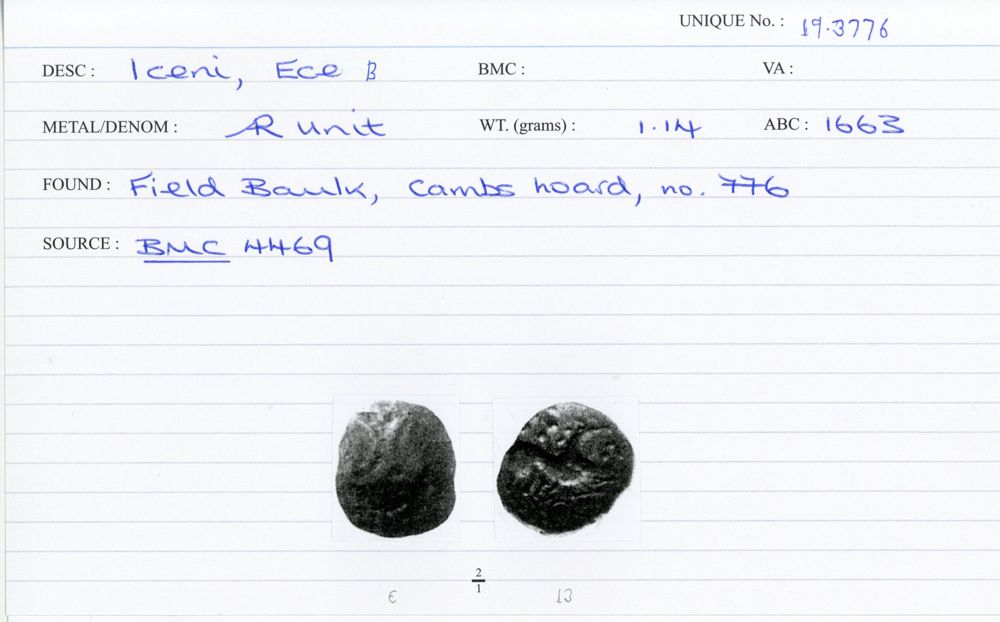 UNIQUE No. : 19.3776
DESC : Iceni, Ece B BMC : VA :
METAL/DENOM : AR unit WT. (grams) : 1.14 ABC : 1663
FOUND : Field Baulk, Cambs hoard, no. 776
SOURCE : BMC 4469
2
1
€ 13